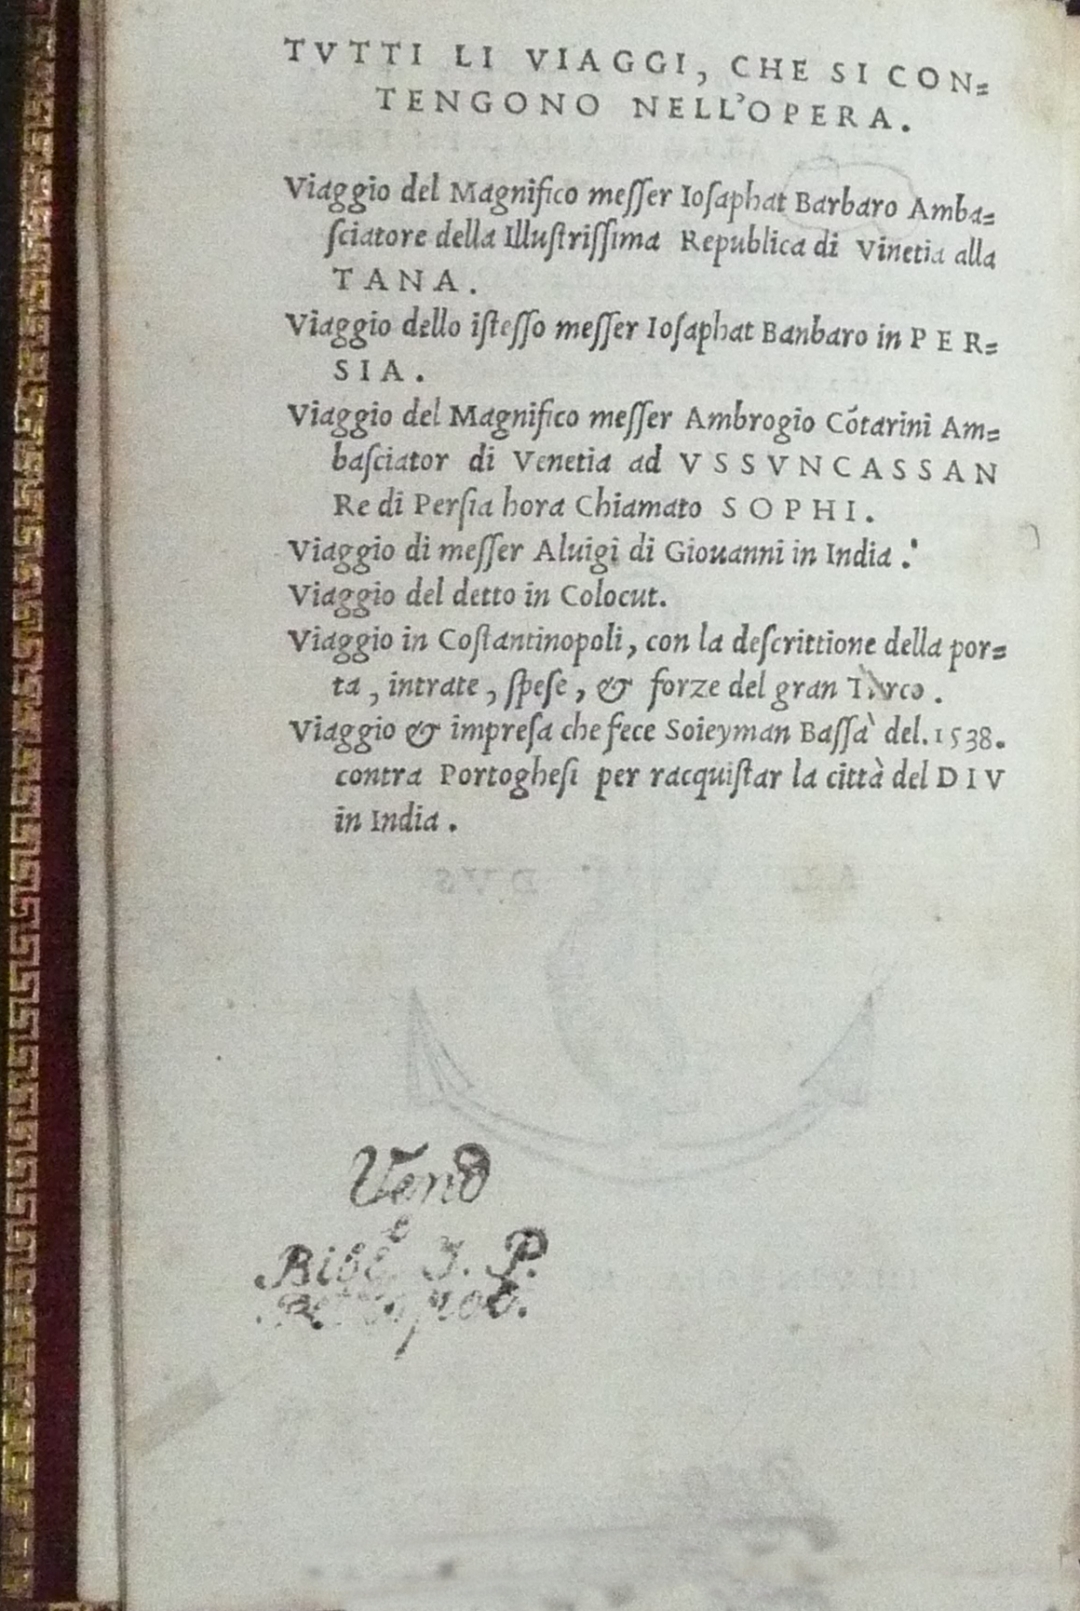 TVTTI LI VIAGGI, CHE SI CON=
TENGONO NELL'OPERA.
Viaggio del Magnifico meſſer Ioſaphat Barbaro Amba=
ſciatore della Illuſtriſſima Republica di Vinetia alla
TANA.
Viaggio dello iſteſſo meſſer Ioſaphat Banbaro in PER=
SIA.
Viaggio del Magnifico meſſer Ambrogio Cōtarini Am=
baſciator di Venetia ad VSSVNCASSAN
Re di Perſia hora Chiamato SOPHI.
Viaggio di meſſer Aluigi di Giouanni in India.
Viaggio del detto in Colocut.
Viaggio in Coſtantinopoli, con la deſcrittione della por=
ta, intrate, ſpeſe, & forze del gran Turco.
Viaggio & impreſa che fece Soieyman Baſſà del. 1538.
contra Portogheſi per racquiſtar la città del DIV
in India.
Vend
e
Bibl. J. P.